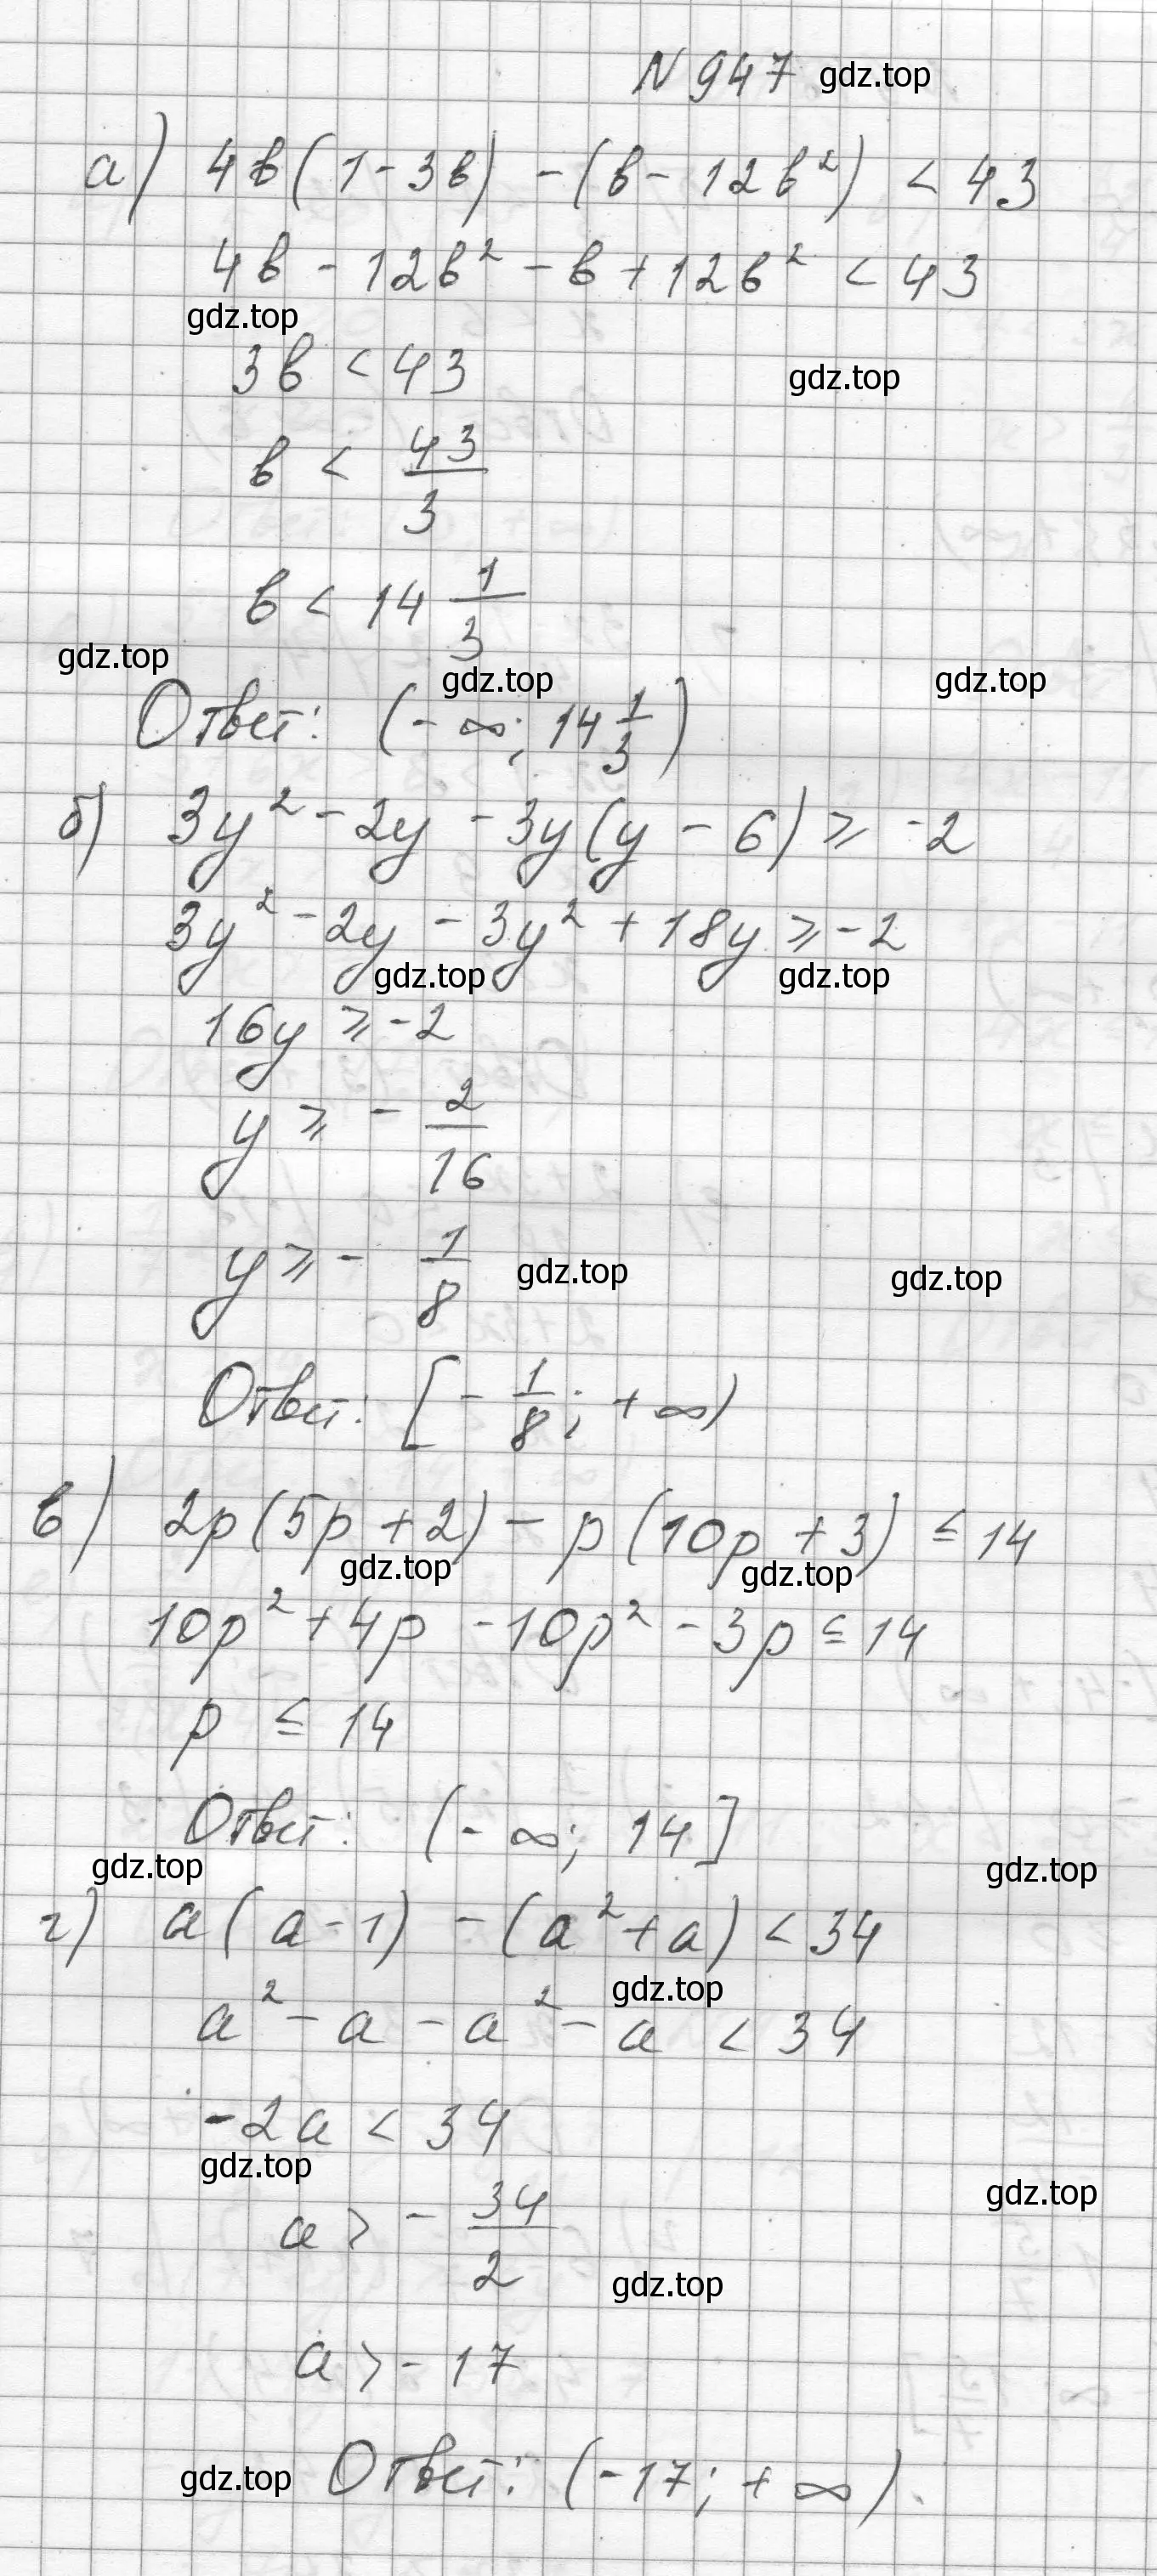 N 947 gdz.top
а) 4в(1-3в) - (в - 12в²) < 43
4в - 12в² - в + 12в² < 43
gdz.top
3в < 43 gdz.top
в < 43/3
в < 14 1/3
gdz.top gdz.top gdz.top
Ответ: (-∞; 14 1/3)
б) 3y² - 2y - 3y(y - 6) ≥ -2
3y² - 2y - 3y² + 18y ≥ -2
gdz.top gdz.top
16y ≥ -2
y ≥ - 2/16
y ≥ - 1/8 gdz.top gdz.top
Ответ: [- 1/8; +∞)
в) 2p(5p + 2) - p(10p + 3) ≤ 14
gdz.top gdz.top
10p² + 4p - 10p² - 3p ≤ 14
p ≤ 14
Ответ: (-∞; 14]
gdz.top gdz.top
г) a(a-1) - (a² + a) < 34
gdz.top
a² - a - a² - a < 34
-2a < 34
gdz.top gdz.top
a > - 34/2
gdz.top
a > -17
gdz.top Ответ: (-17; +∞).